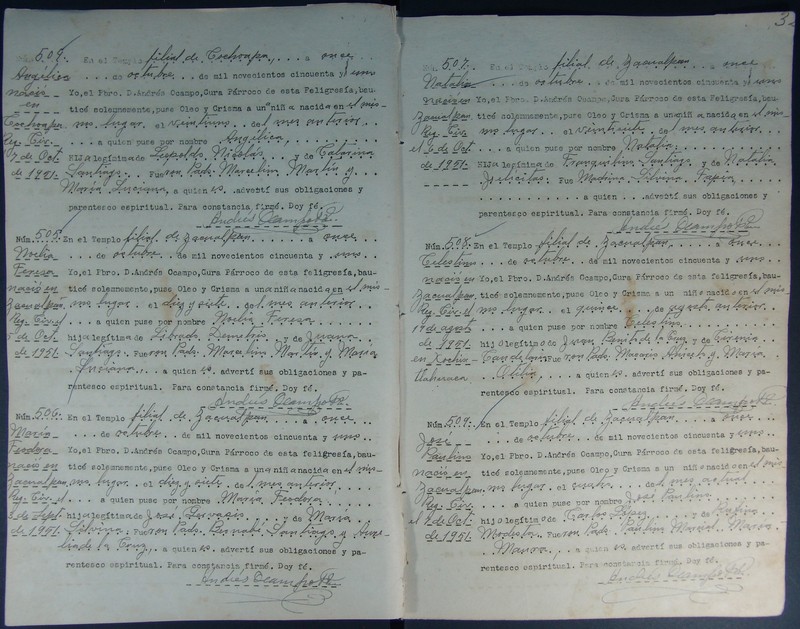 504. En el Templo filial de Cochoapa, a once
Angélica de octubre de mil novecientos cincuenta y uno
nació Yo, el Pbro. D. Andrés Ocampo, Cura Párroco de esta Feligresía, bau-
en ticé solemnemente, puse Oleo y Crisma a una niña nacida en el mis-
Cochoapa mo lugar el veintiuno del mes anterior
Reg. Civ. a quien puse por nombre Angélica,
7 de Oct. HIJa legítima de Leopoldo Nicolás y de Catarina
de 1951. Santiago. Fueron Pads. Marcelino Martín y
María Luciana, a quien es. advertí sus obligaciones y
parentesco espiritual. Para constancia firmé. Doy fé.
Andrés Ocampo
Núm. 505. En el Templo filial de Zacualpan a once
Noelia de octubre de mil novecientos cincuenta y uno
Teresa Yo, el Pbro. D. Andrés Ocampo, Cura Párroco de esta feligresía, bau-
nació en ticé solemnemente, puse Oleo y Crisma a una niña nacida en el mis-
Zacualpan mo lugar el diez y siete del mes anterior
Reg. Civ. el a quien puse por nombre Noelia Teresa
5 de Oct. hija legítima de Librado y de Juana
de 1951. Santiago. Fueron Pads. Marcelino Martín y María
Luciana, a quien es. advertí sus obligaciones y pa-
rentesco espiritual. Para constancia firmé. Doy fé.
Andrés Ocampo
Núm. 506. En el Templo filial de Zacualpan a once
María de octubre de mil novecientos cincuenta y uno
Teodora Yo, el Pbro. D. Andrés Ocampo, Cura Párroco de esta feligresía, bau-
nació en ticé solemnemente, puse Oleo y Crisma a una niña nacida en el mis-
Zacualpan mo lugar el diez y siete del mes anterior
Reg. Civ. el a quien puse por nombre María Teodora
de Sept. hija legítima de José y de María
de 1951. Silvina. Fueron Pads. Bernabé Santiago y
de la Cruz, a quien es. advertí sus obligaciones y pa-
rentesco espiritual. Para constancia firmé. Doy fé.
Andrés Ocampo
3
Núm. 507. En el Templo filial de Zacualpan a once
Natalia de octubre de mil novecientos cincuenta y uno
nació en Yo, el Pbro. D. Andrés Ocampo, Cura Párroco de esta Feligresía, bau-
Zacualpan ticé solemnemente, puse Oleo y Crisma a una niña nacida en el mis-
Reg. Civ. mo lugar el veintisiete del mes anterior
el de Oct. a quien puse por nombre Natalia
de 1951. HIJa legítima de Tranquilino Santiago y de Natalia
Felícitas. Fue Madrina Silvina Tapia
a quien advertí sus obligaciones y
parentesco espiritual. Para constancia firmé. Doy fé.
Andrés Ocampo
Núm. 508. En el Templo filial de Zacualpan, a once
Celestino de octubre de mil novecientos cincuenta y uno
nació en Yo, el Pbro. D. Andrés Ocampo, Cura Párroco de esta feligresía, bau-
Zacualpan ticé solemnemente, puse Oleo y Crisma a un niño nacido en el mis-
Reg. Civ. el mo lugar el quince de agosto anterior
17 de agosto a quien puse por nombre Celestino
de 1951 hijo legítimo de Juan de la Cruz y de
en Fueron Pads. Macario y María
a quien es. advertí sus obligaciones y pa-
rentesco espiritual. Para constancia firmé. Doy fé.
Andrés Ocampo
Núm. 509. En el Templo filial de Zacualpan a once
José de octubre de mil novecientos cincuenta y uno
Paulino Yo, el Pbro. D. Andrés Ocampo, Cura Párroco de esta feligresía, bau-
nació en ticé solemnemente, puse Oleo y Crisma a un niño nacido en el mis-
Zacualpan mo lugar el cuatro del mes actual
Reg. Civ. a quien puse por nombre José Paulino
el 9 de Oct. hijo legítimo de Carlos López y de Rufina
de 1951. Modesta. Fueron Pads. Paulino Marcial María
a quien es. advertí sus obligaciones y pa-
rentesco espiritual. Para constancia firmé. Doy fé.
Andrés Ocampo